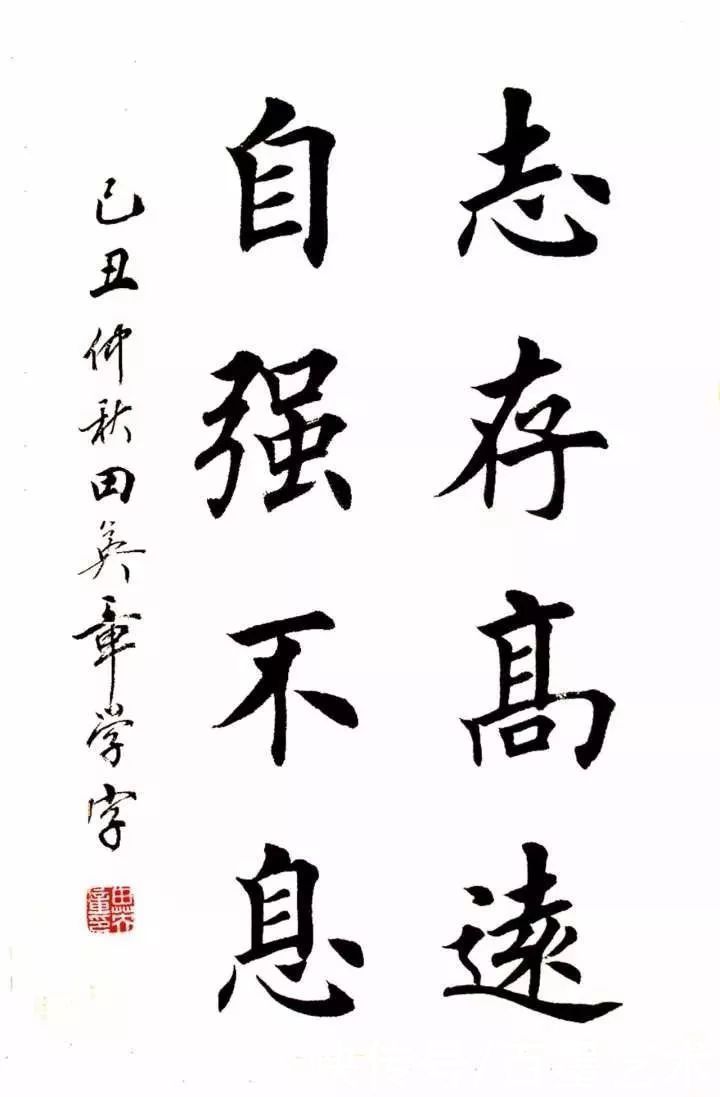 志存高遠
自强不息
己丑仲秋田英章学字